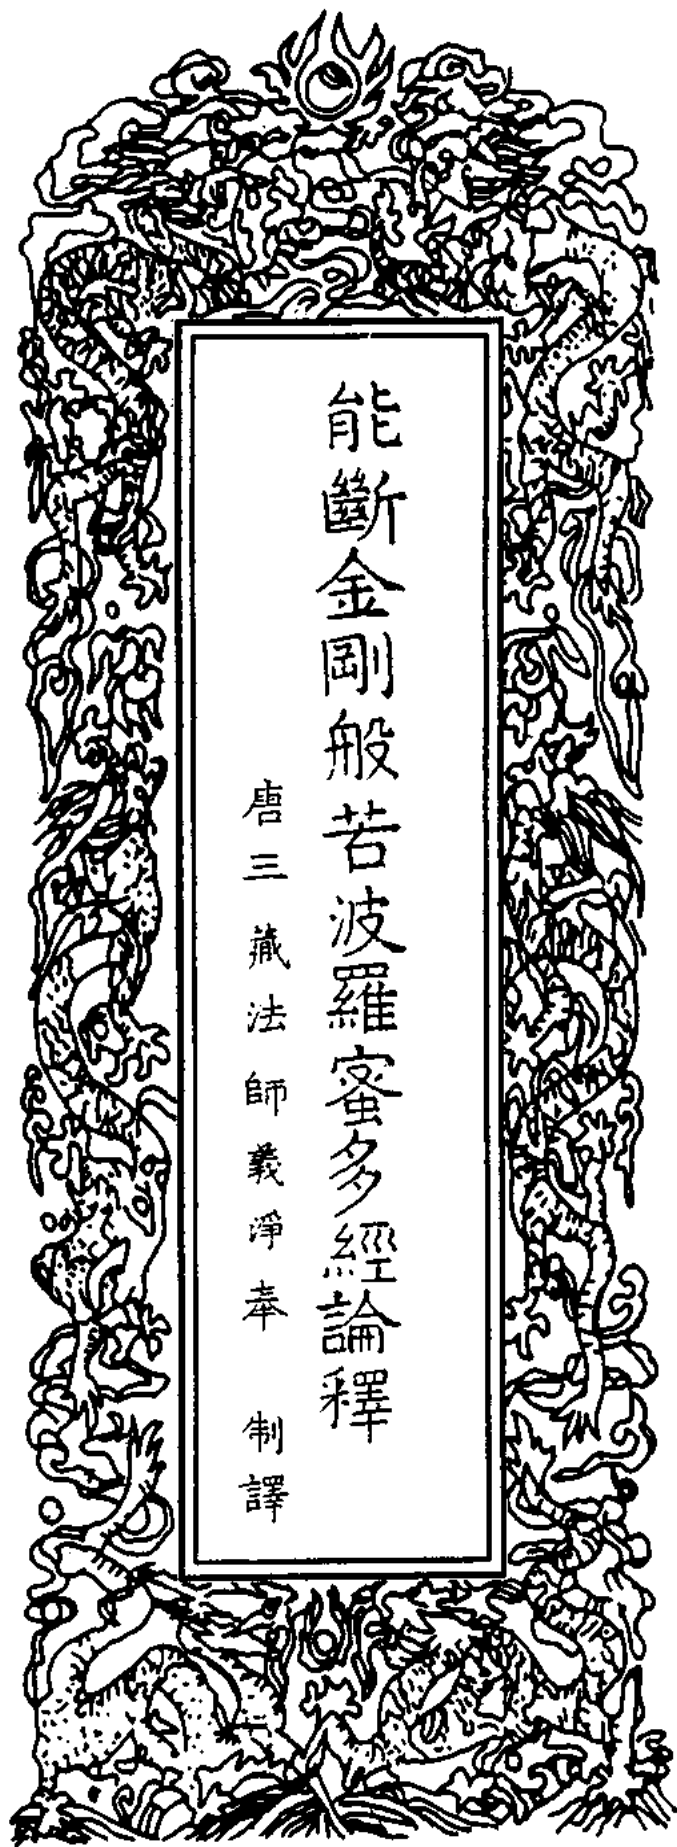 能斷金剛般若波羅蜜多經論釋
唐三藏法師義淨奉　制譯